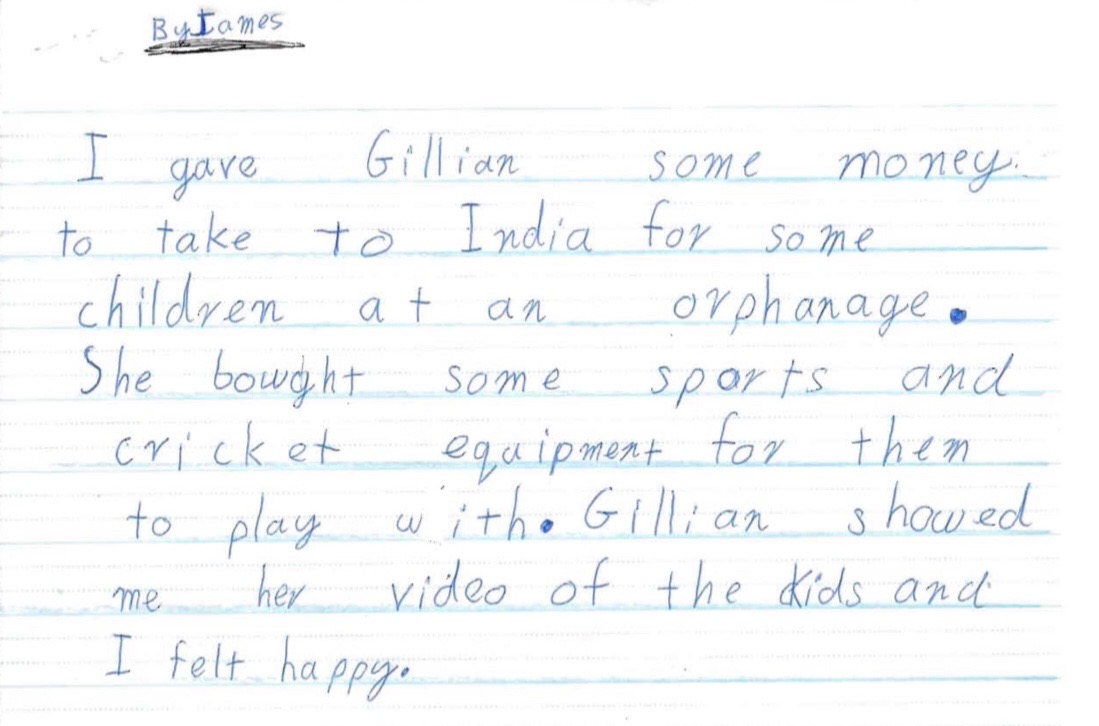 By James
I gave Gillian some money.
to take to India for some
children at an orphanage.
She bought some sports and
cricket equipment for them
to play with. Gillian showed
me her video of the kids and
I felt happy.